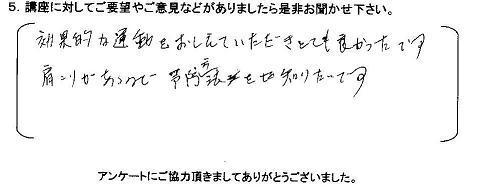 5. 講座に対してご要望やご意見などがありましたら是非お聞かせ下さい。
効果的な運動をおしえていただきとても良かったです
肩こりがあるので 予防 も知りたいです
アンケートにご協力頂きましてありがとうございました。